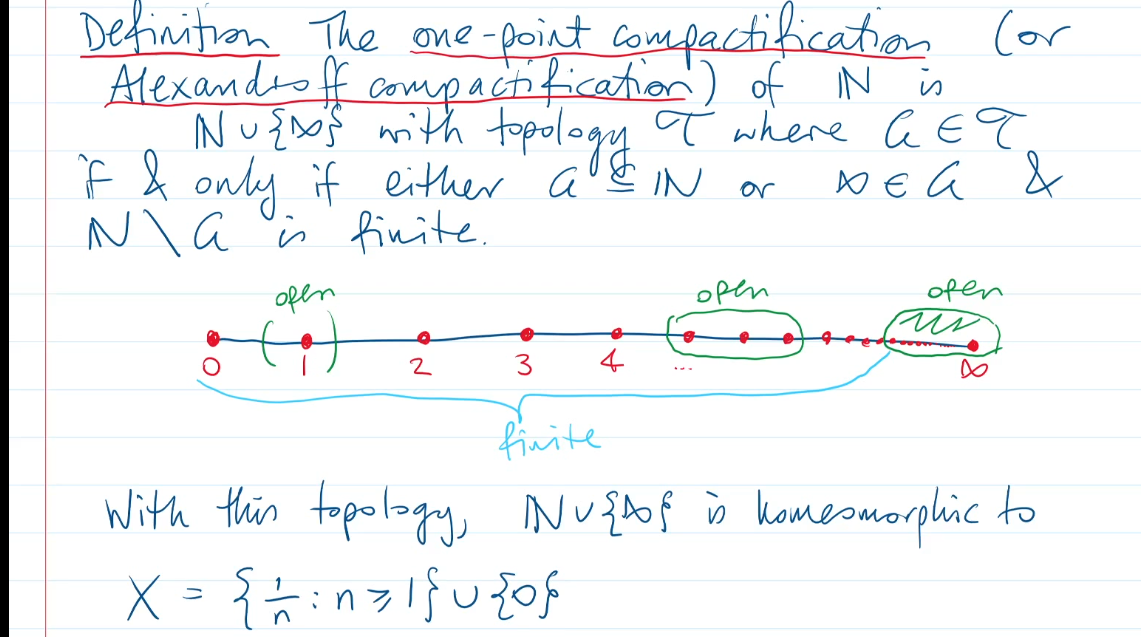 Definition The one-point compactification (or
Alexandroff compactification) of ℕ is
ℕ ∪ {∞} with topology 𝒯 where G ∈ 𝒯
if & only if either G ⊆ ℕ or ∞ ∈ G &
ℕ \ G is finite.
open open open
0 1 2 3 4 ... ∞
finite
With this topology, ℕ ∪ {∞} is homeomorphic to
X = {1/n : n ⩾ 1} ∪ {0}